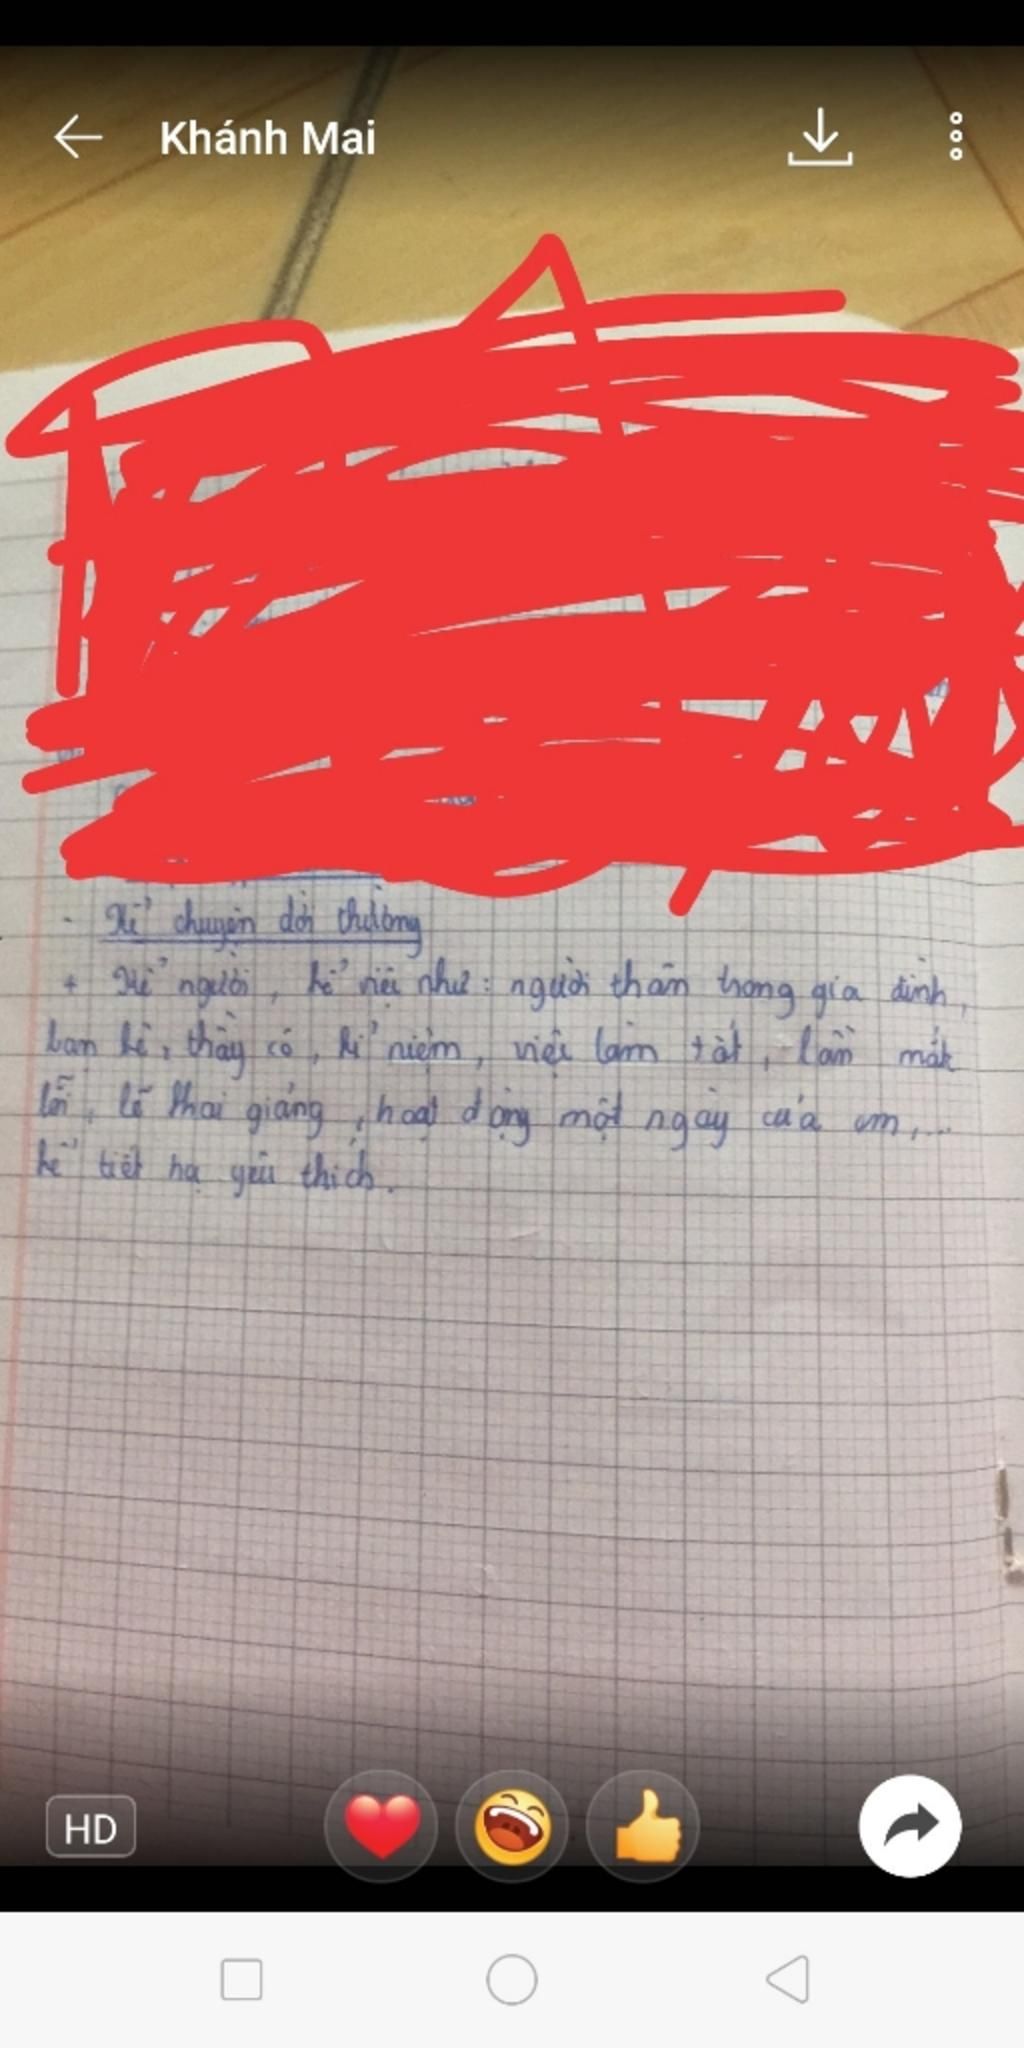 Khánh Mai
- Kể chuyện đời thường
+ Kể người, kể việc như: người thân trong gia đình,
bạn bè, thầy cô, kỉ niệm, việc làm tốt, lần mắc
lỗi, lễ khai giảng, hoạt động một ngày của em,...
kể tiết học yêu thích.
HD